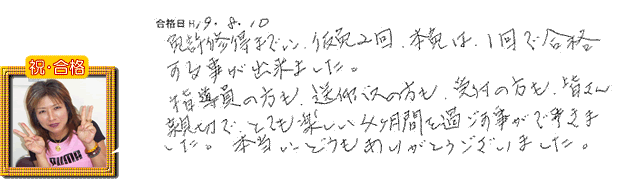 合格日 H19.8.10
免許修得までに、仮免2回、本免は、1回で合格
する事が出来ました。
指導員の方も、送仰バスの方も、受付の方も、皆さん
親切で、とても楽しい4ヶ月間を過ごす事ができま
した。本当に、どうもありがとうございました。
祝・合格
PUMA